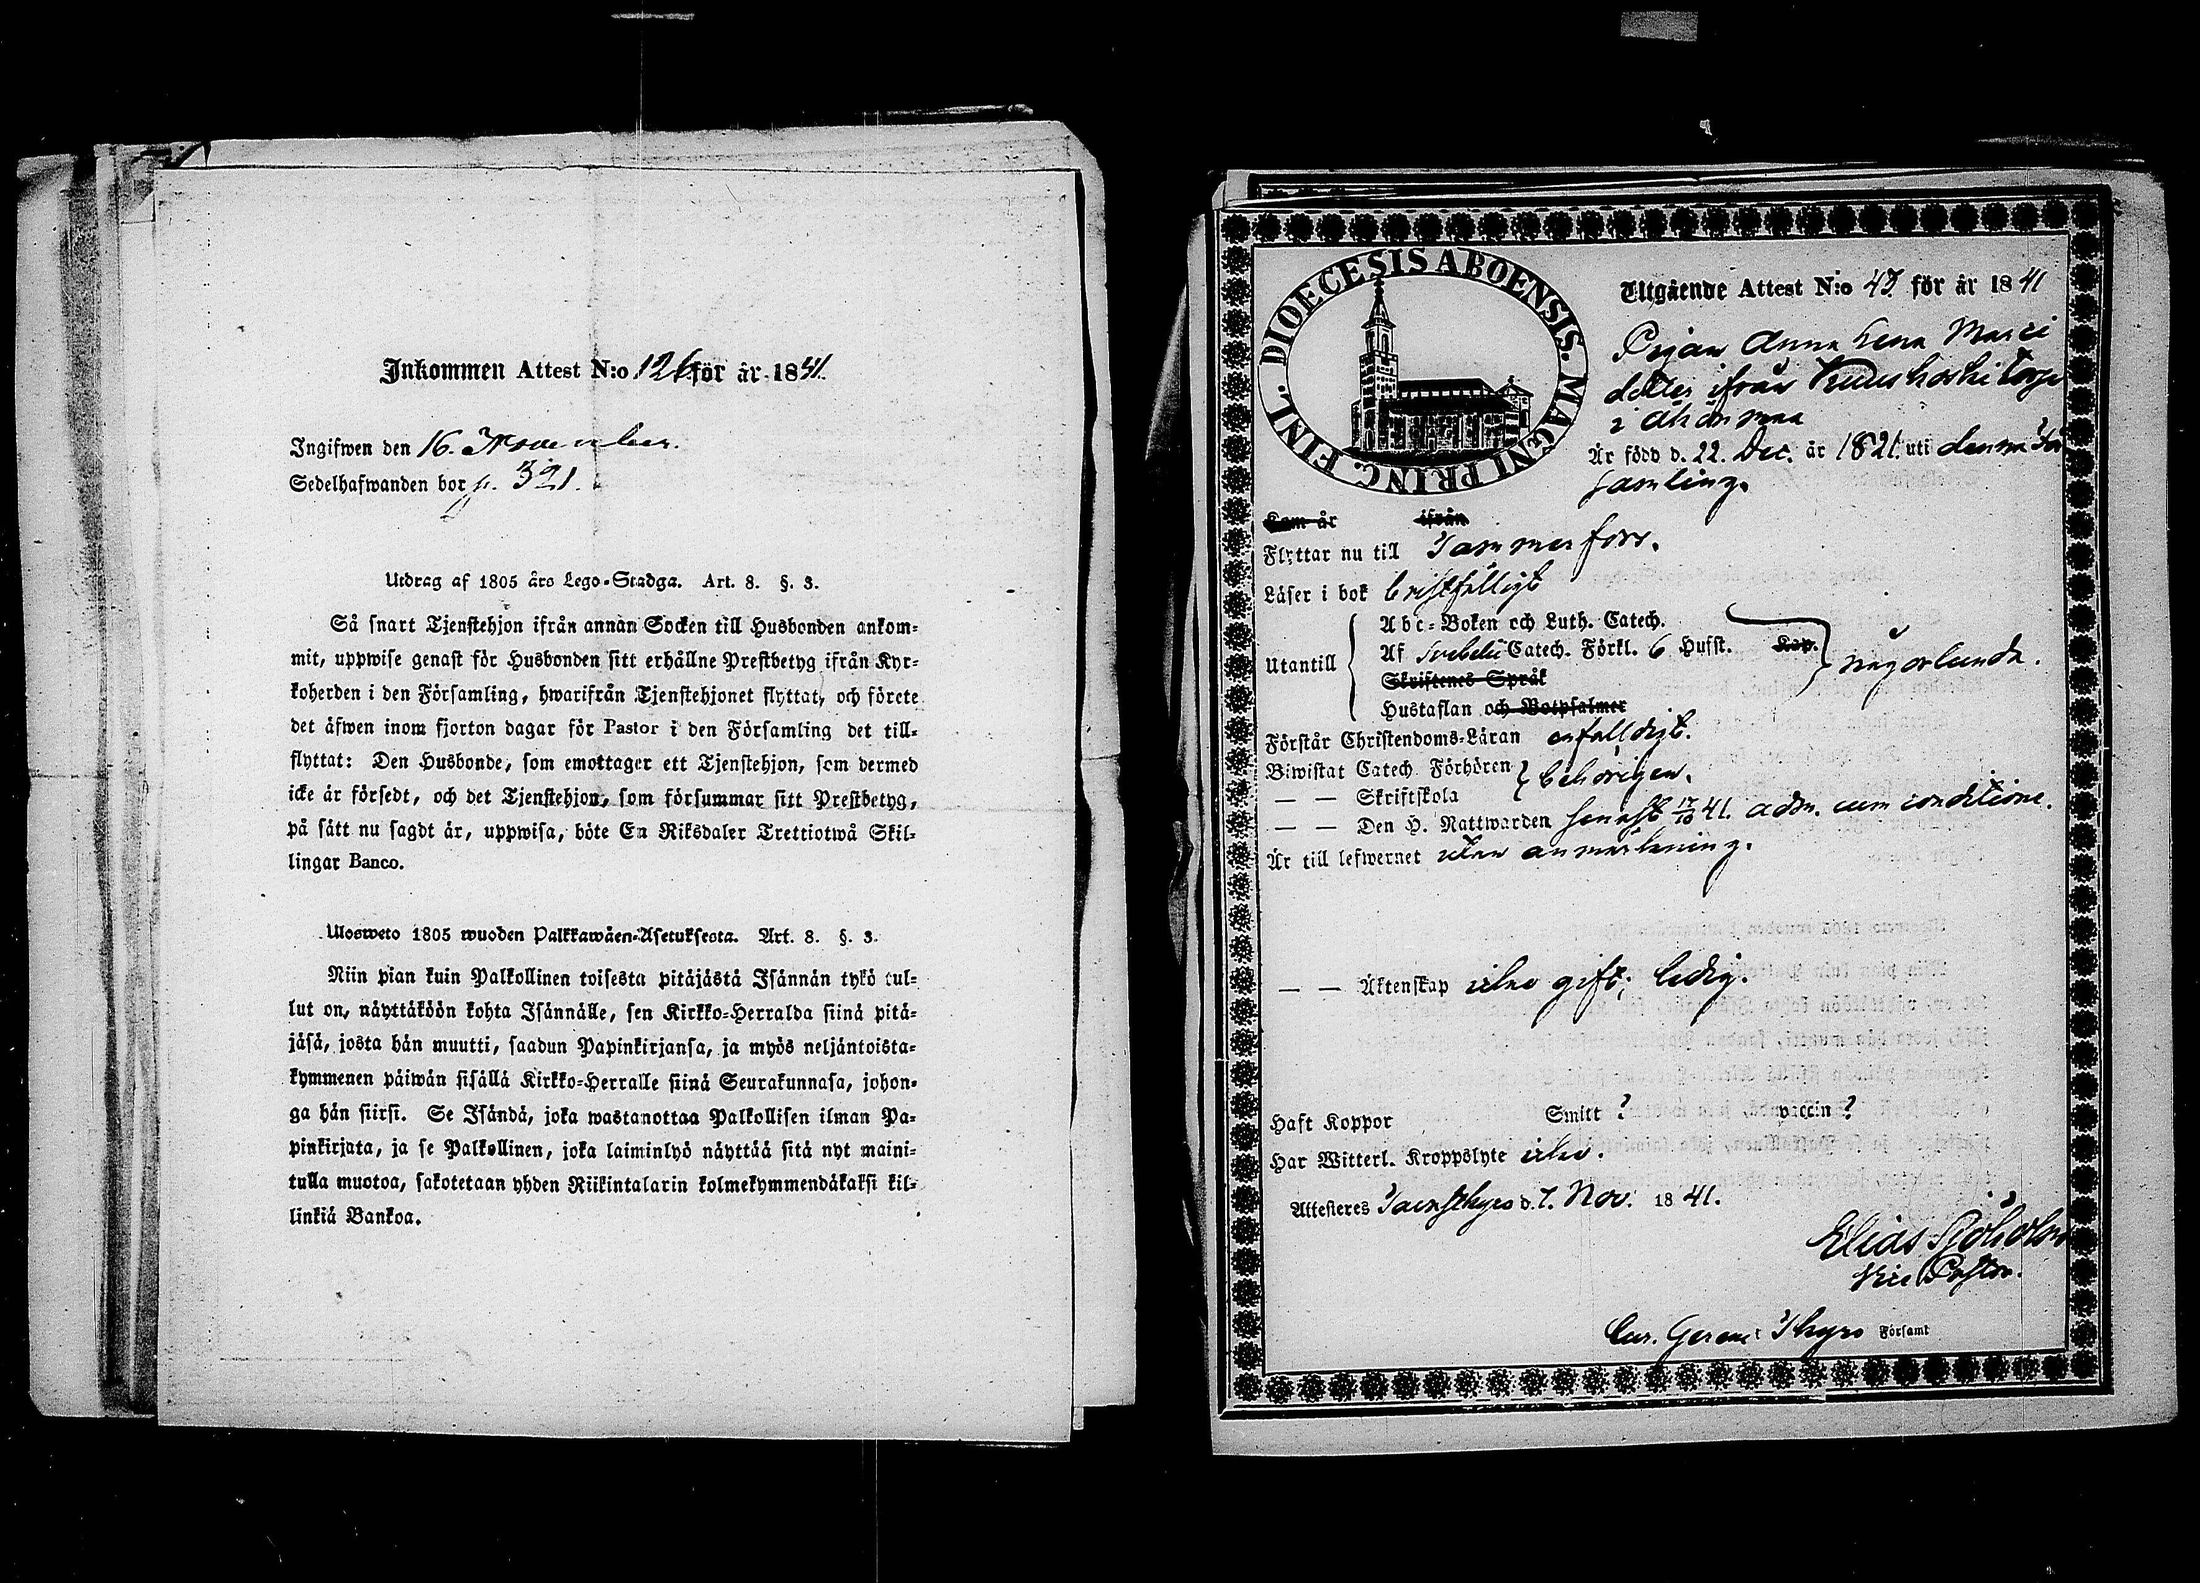 Inkommen Attest N:o 126 för år 1841.
Ingifwen den 16. November.
Sedelhafwanden bor p. 321.
Utdrag af 1805 års Lego-Stadga. Art. 8. §. 3.
Så snart Tjenstehjon ifrån annan Socken till Husbonden ankom-
mit, uppwise genast för Husbonden sitt erhållne Prestbetyg ifrån Kyr-
koherden i den Församling, hwarifrån Tjenstehjonet flyttat, och förete
det äfwen inom fjorton dagar för Pastor i den Församling det till-
flyttat: Den Husbonde, som emottager ett Tjenstehjon, som dermed
icke är försedt, och det Tjenstehjon, som försummar sitt Prestbetyg,
på sätt nu sagdt är, uppwisa, böte En Riksdaler Trettiotwå Skil-
lingar Banco.
Ulosweto 1805 wuoden Palkkawäen-Asetuksesta. Art. 8. §. 3.
Niin pian kuin Palkollinen toisesta pitäjästä Isännän tykö tul-
lut on, näyttäköön kohta Isännälle, sen Kirkko-Herralda siinä pitä-
jäsä, josta hän muutti, saadun Papinkirjansa, ja myös neljäntoista-
kymmenen päiwän sisällä Kirkko-Herralle siinä Seurakunnasa, johon-
ga hän siirsi. Se Isändä, joka wastanottaa Palkollisen ilman Pa-
pinkirjata, ja se Palkollinen, joka laiminlyö näyttää sitä nyt maini-
tulla muotoa, sakotetaan yhden Riikintalarin kolmekymmendäkaksi kil-
linkiä Bankoa.
DIOECESIS ABOENSIS. MAGNI PRINC. FINL.
Utgående Attest N:o 43 för år 1841
Pigan Anna Lena Marci
dotter ifrån Kuuskoski Torp
i
Är född d. 22. Dec. år 1821. uti denna För
samling.
Kom år ifrån
Flyttar nu till Tammerfors.
Läser i bok bristfälligt
Utantill
Abc-Boken och Luth. Catech.
Af Svebelii Catech. Förkl. 6 Hufst. Kap.
Skriftenes Språk
Hustaflan och Botpsalmer
någorlunda.
Förstår Christendoms-Läran enfalldigt.
Biwistat Catech. Förhören
— — Skriftskola
behörigen.
— — Den H. Nattwarden senast 17/10 41. adm. cum conditione.
Är till lefwernet utan anmärkning.
— — Äktenskap icke gift; ledig.
Haft Koppor Smitt ? vaccin ?
Har Witterl. Kroppslyte icke.
Attesteres Tavastkyro d. 7. Nov. 1841.
Elias Sjöholm
Vice Pastor.
Cur. Gerens i Tkyro Församl